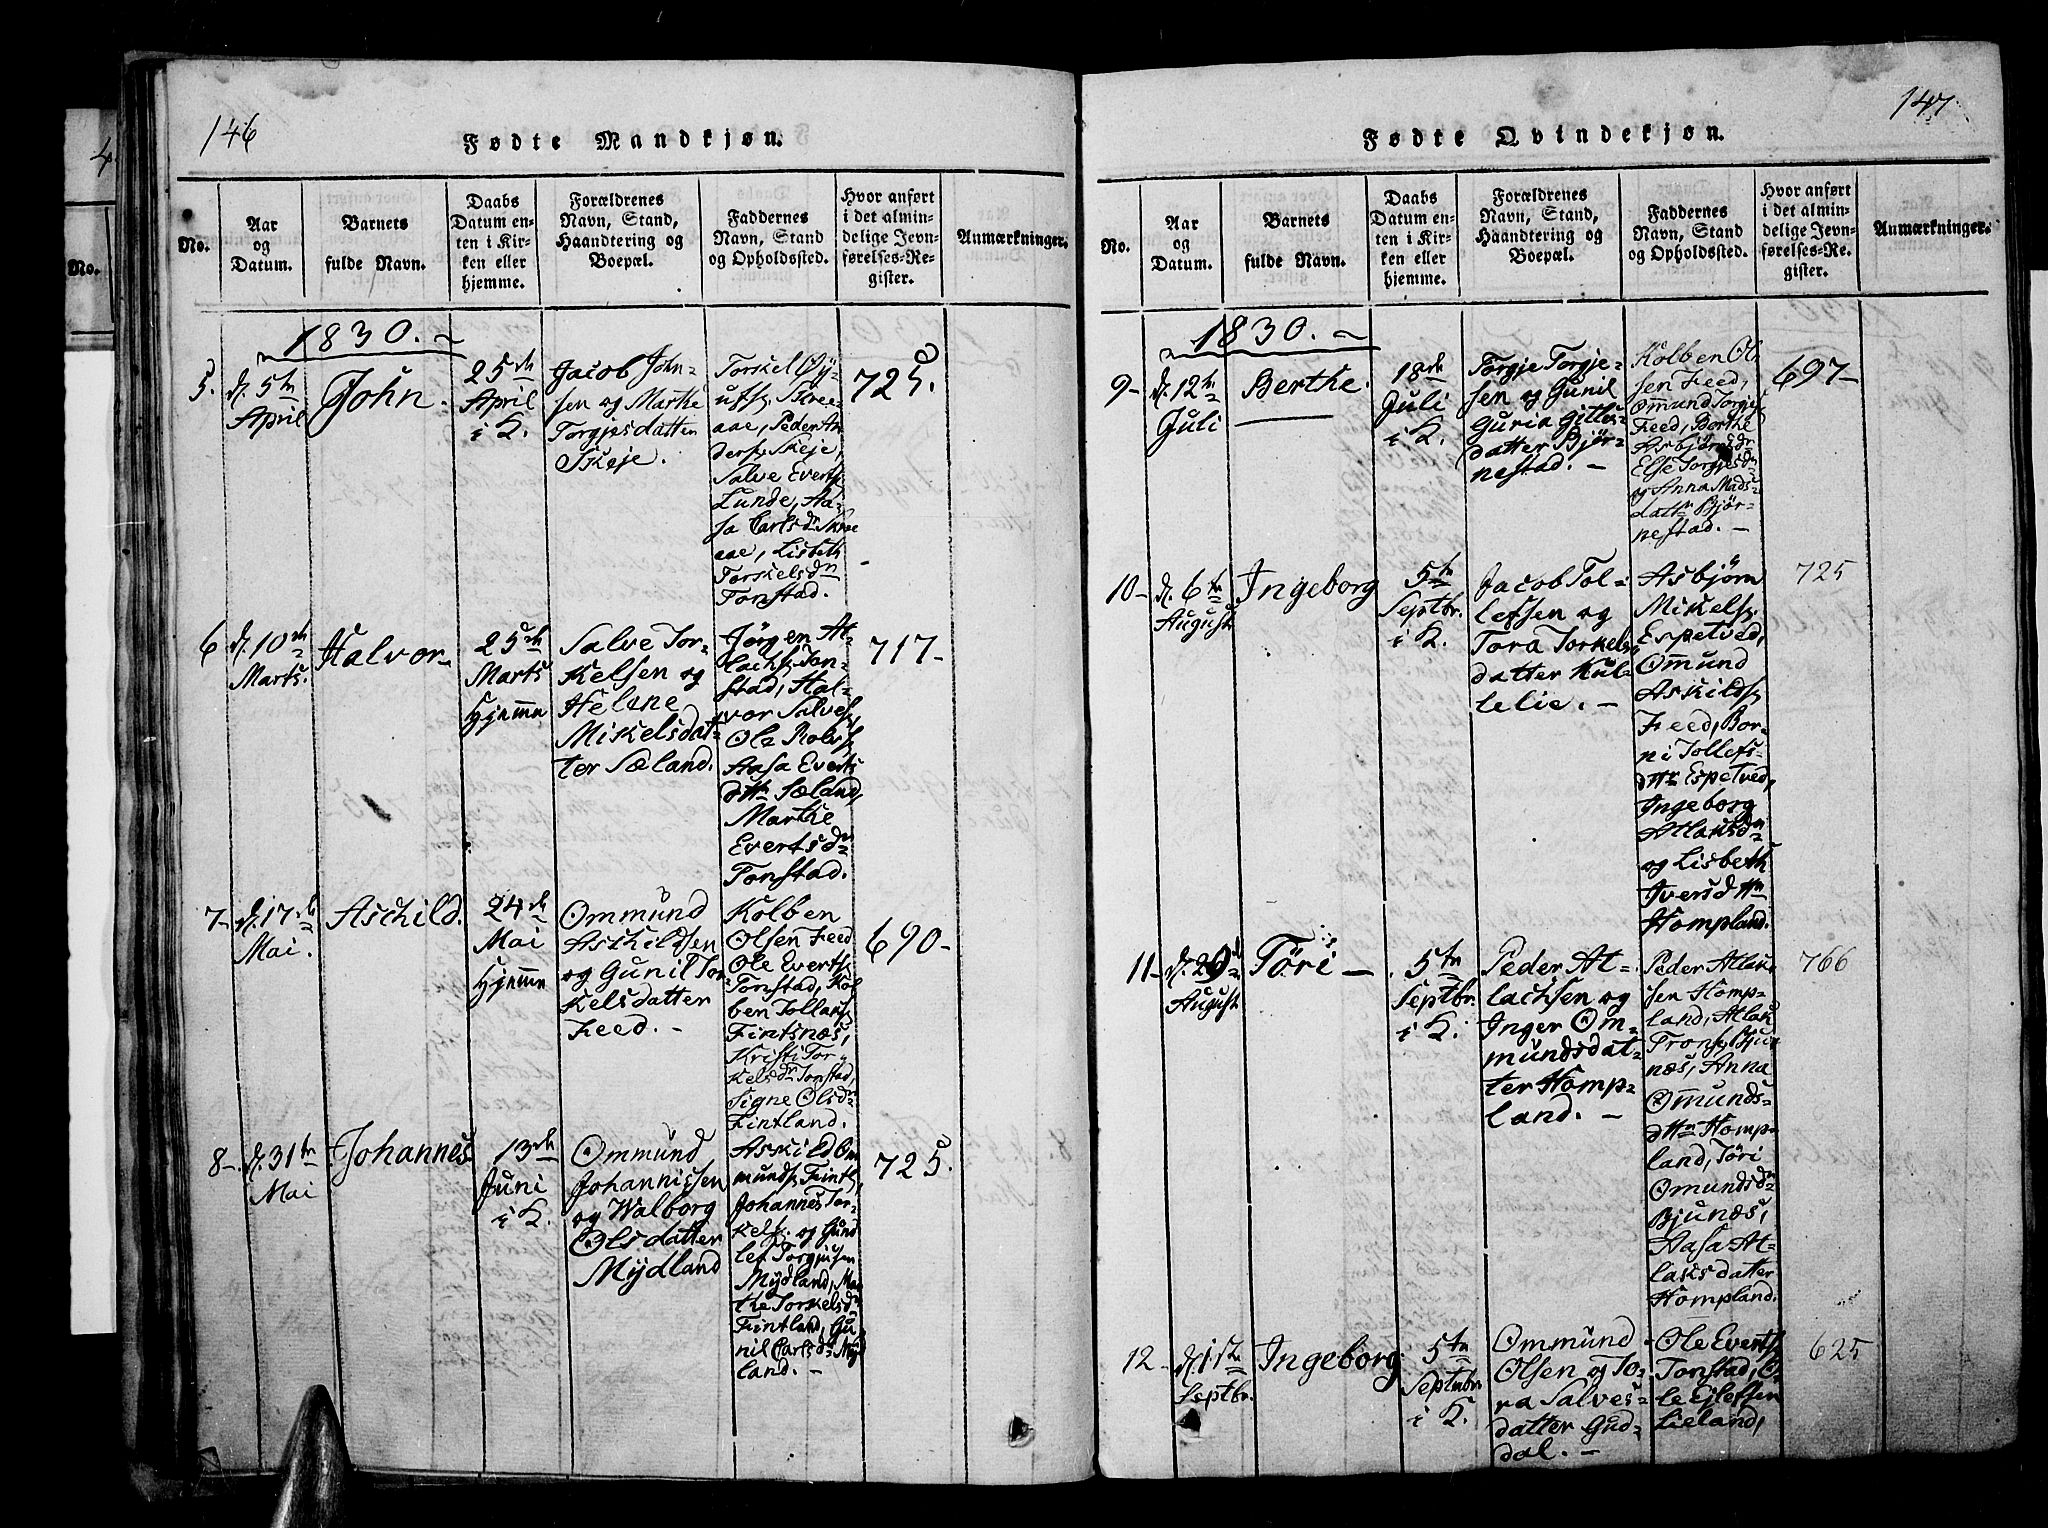 146
Fødte Mandkjøn.
No.
Aar
og
Datum.
Barnets
fulde Navn.
Daabs
Datum en-
ten i Kir-
ken eller
hjemme.
Forældrenes
Navn, Stand,
Haandtering og
Boepæl.
Faddernes
Navn, Stand
og Opholdssted.
Hvor anført
i det almin-
delige Jevn-
førelses-Re-
gister.
Anmærkninger.
1830.
5.
d. 5te
April
John.
25de
April
i K.
Jacob John-
sen og Marthe
Torgjesdatter
Skeje.
Torskel Øy-
ufs. Skree
aae, Peder An
ders. Skeje,
Salve Everts.
Lunde, Aa-
sa Carlsdr Skree
aae, Lisbeth
Torskelsdr
Tonstad.
725.
6
d. 10de
Marts.
Halvor
25de
Marts
Hjemme
Salve Tor-
kelsen og
Helene
Mikelsdat-
ter Sæland.
Jørgen At-
lachs. Ton-
stad, Hal-
vor Salves.
Ole Robs.
Aasa Everts
dttr Sæland,
Marthe
Evertsdr
Tonstad.
717-
7-
d. 17de
Mai.
Aschild.
24de
Mai
Hjemme
Ommund
Aschildsen
og Gunil Tor
kelsdatter
Feed.
Kolben
Olsen Feed
Ole Everts.
Tonstad, Kol
ben Tollaks.
Fintsnæs,
Kristi Tor-
kelsdr Tonstad,
Signe Olsdr
Fintland.
690-
8-
d. 31te
Mai
Johannes
13de
Juni
i K.
Ommund
Johannissen
og Walborg
Olsdatter
Mydland
Askild Om
munds. Fintl.,
Johannes Tor-
kels. og Gund
lef Torgjusen
Mydland, Mar
the Torkelsdr
Fintland, Gu-
nil Carlsdr Myd
land.
725.
147
Fødte Qvindekjøn.
No.
Aar
og
Datum.
Barnets
fulde Navn.
Daabs
Datum en-
ten i Kir-
ken eller
hjemme.
Forældrenes
Navn, Stand,
Haandtering og
Boepæl.
Faddernes
Navn, Stand
og Opholdssted.
Hvor anført
i det almin-
delige Jevn-
førelses-Re-
gister.
Anmærkninger.
1830.
9-
d. 12te
Juli
Berthe.
18de
Juli
i K.
Torgje Torgje-
sen og Gunil
Guria Gitles-
datter Bjør-
nestad.
Kolben Ol-
sen Feed,
Ommund Torgjes.
Feed, Berthe
Asbjørnsdr
Else Torgjesdr
og Anna Mads-
dattr Bjør-
nestad.
697-
10-
d. 6te
August
Ingeborg
5te
Septbr.
i K.
Jacob Tol-
lefsen og
Tora Torkels-
datter Kul-
lelie.
Asbjørn
Mikels.
Espetved,
Ommund
Askilds.
Feed, Bor-
ni Tollefs-
dttr Espetved,
Ingeborg
Atlaksdr
og Lisbeth
Iversdttr
Hompland.
725
11-
d. 29de
August
Töri
5te
Septbr.
i K.
Peder At-
lachsen og
Inger Om-
mundsdat-
ter Homp-
land.
Peder Atlak-
sen Homp-
land, Atlak
Trons. Bju-
næs, Anna
Ommunds-
dttr Homp-
land, Töri
Omundsdr
Bjunæs,
Aasa At-
laksdatter
Hompland.
766
12-
d. 1ste
Septbr.
Ingeborg
5te
Septmbr
i K.
Ommund
Olsen og To-
ra Salves-
datter Gud-
dal.
Ole Everts.
Tonstad, O-
le Ejlefsen
Lieland,
625